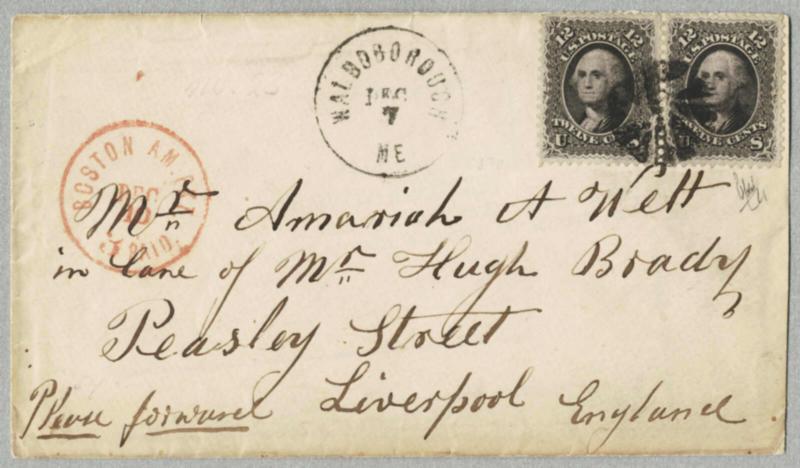 12 12
U.S. POSTAGE U.S. POSTAGE
TWELVE CENTS TWELVE CENTS
U S U S
WALDOBOROUGH
DEC
7
ME
BOSTON AM. PKT
DEC
PAID
Mr Amariah A Wett
in Care of Mr Hugh Brady
Peasley Street
Liverpool England
Please forward